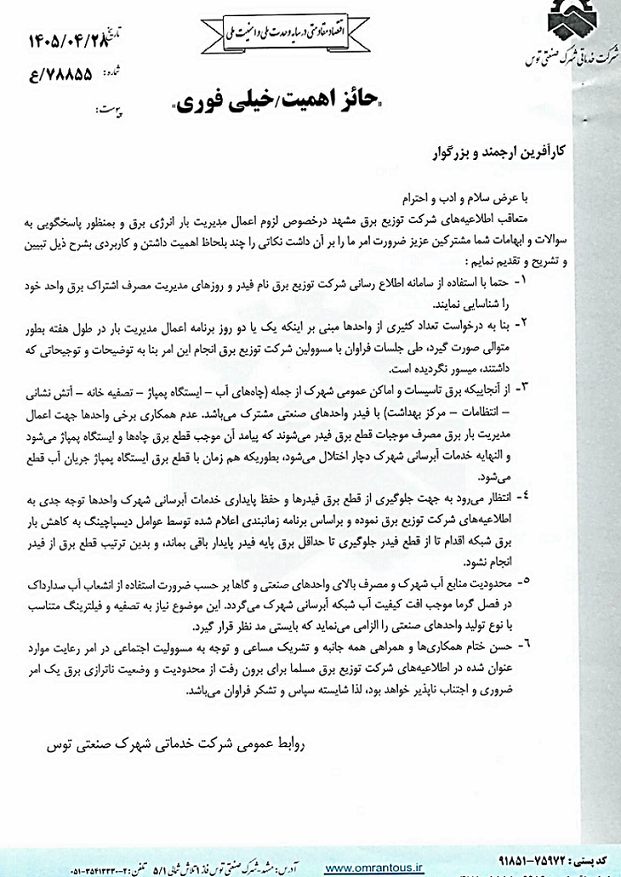 اقتصاد مقاومتی در سایه وحدت ملی و امنیت ملی
شرکت خدماتی شهرک صنعتی توس
تاریخ: ۱۴۰۵/۰۴/۲۸
شماره: ۷۸۸۵۵/ع
پیوست:
«حائز اهمیت/خیلی فوری»
کارآفرین ارجمند و بزرگوار
با عرض سلام و ادب و احترام
متعاقب اطلاعیه‌های شرکت توزیع برق مشهد درخصوص لزوم اعمال مدیریت بار انرژی برق و بمنظور پاسخگویی به
سوالات و ابهامات شما مشترکین عزیز ضرورت امر ما را بر آن داشت نکاتی را چند بلحاظ اهمیت داشتن و کاربردی بشرح ذیل تبیین
و تشریح و تقدیم نمایم :
۱- حتما با استفاده از سامانه اطلاع رسانی شرکت توزیع برق نام فیدر و روزهای مدیریت مصرف اشتراک برق واحد خود
را شناسایی نمایند.
۲- بنا به درخواست تعداد کثیری از واحدها مبنی بر اینکه یک یا دو روز برنامه اعمال مدیریت بار در طول هفته بطور
متوالی صورت گیرد، طی جلسات فراوان با مسوولین شرکت توزیع برق انجام این امر بنا به توضیحات و توجیحاتی که
داشتند، میسور نگردیده است.
۳- از آنجاییکه برق تاسیسات و اماکن عمومی شهرک از جمله (چاه‌های آب – ایستگاه پمپاژ – تصفیه خانه – آتش نشانی
– انتظامات – مرکز بهداشت) با فیدر واحدهای صنعتی مشترک می‌باشد. عدم همکاری برخی واحدها جهت اعمال
مدیریت بار برق مصرف موجبات قطع برق فیدر می‌شوند که پیامد آن موجب قطع برق چاه‌ها و ایستگاه پمپاژ می‌شود
و النهایه خدمات آبرسانی شهرک دچار اختلال می‌شود، بطوریکه هم زمان با قطع برق ایستگاه پمپاژ جریان آب قطع
می‌شود.
۴- انتظار می‌رود به جهت جلوگیری از قطع برق فیدرها و حفظ پایداری خدمات آبرسانی شهرک واحدها توجه جدی به
اطلاعیه‌های شرکت توزیع برق نموده و براساس برنامه زمانبندی اعلام شده توسط عوامل دیسپاچینگ به کاهش بار
برق شبکه اقدام تا از قطع فیدر جلوگیری تا حداقل برق پایه فیدر پایدار باقی بماند، و بدین ترتیب قطع برق از فیدر
انجام نشود.
۵- محدودیت منابع آب شهرک و مصرف بالای واحدهای صنعتی و گاها بر حسب ضرورت استفاده از انشعاب آب سدارداک
در فصل گرما موجب افت کیفیت آب شبکه آبرسانی شهرک می‌گردد. این موضوع نیاز به تصفیه و فیلترینگ متناسب
با نوع تولید واحدهای صنعتی را الزامی می‌نماید که بایستی مد نظر قرار گیرد.
۶- حسن ختام همکاری‌ها و همراهی همه جانبه و تشریک مساعی و توجه به مسوولیت اجتماعی در امر رعایت موارد
عنوان شده در اطلاعیه‌های شرکت توزیع برق مسلما برای برون رفت از محدودیت و وضعیت ناترازی برق یک امر
ضروری و اجتناب ناپذیر خواهد بود، لذا شایسته سپاس و تشکر فراوان می‌باشد.
روابط عمومی شرکت خدماتی شهرک صنعتی توس
کد پستی : ۷۵۹۷۲-۹۱۸۵۱
www.omrantous.ir
آدرس: مشهد-شهرک صنعتی توس فاز ۱ تلاش شمالی ۵/۱ تلفن: ۴-۳۵۴۱۳۳۳۰-۰۵۱